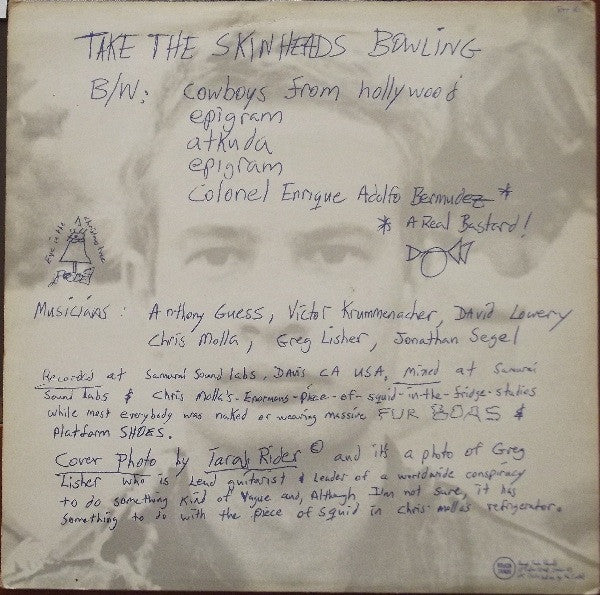 TAKE THE SKINHEADS BOWLING
B/W: Cowboys from hollywood
epigram
atkuda
epigram
Colonel Enrique Adolfo Bermudez *
* A Real Bastard!
Eve is the Christmas tree
Musicians: Anthony Guess, Victor Krummenacher, David Lowery
Chris Molla, Greg Lisher, Jonathan Segel
Recorded at Samurai Sound labs, DAVIS CA USA, Mixed at Samurai
Sound labs & Chris Molla's-Enormous-Piece-of-squid-in-the-fridge-studios
while most everybody was naked or wearing massive FUR BOAS &
Platform SHOES.
Cover Photo by Tarah Rider © and it's a photo of Greg
Lisher who is Lead guitarist & Leader of a worldwide conspiracy
to do something kind of vague and, Although I'm not sure, it has
something to do with the piece of squid in Chris mollas refrigerator.
ROUGH TRADE